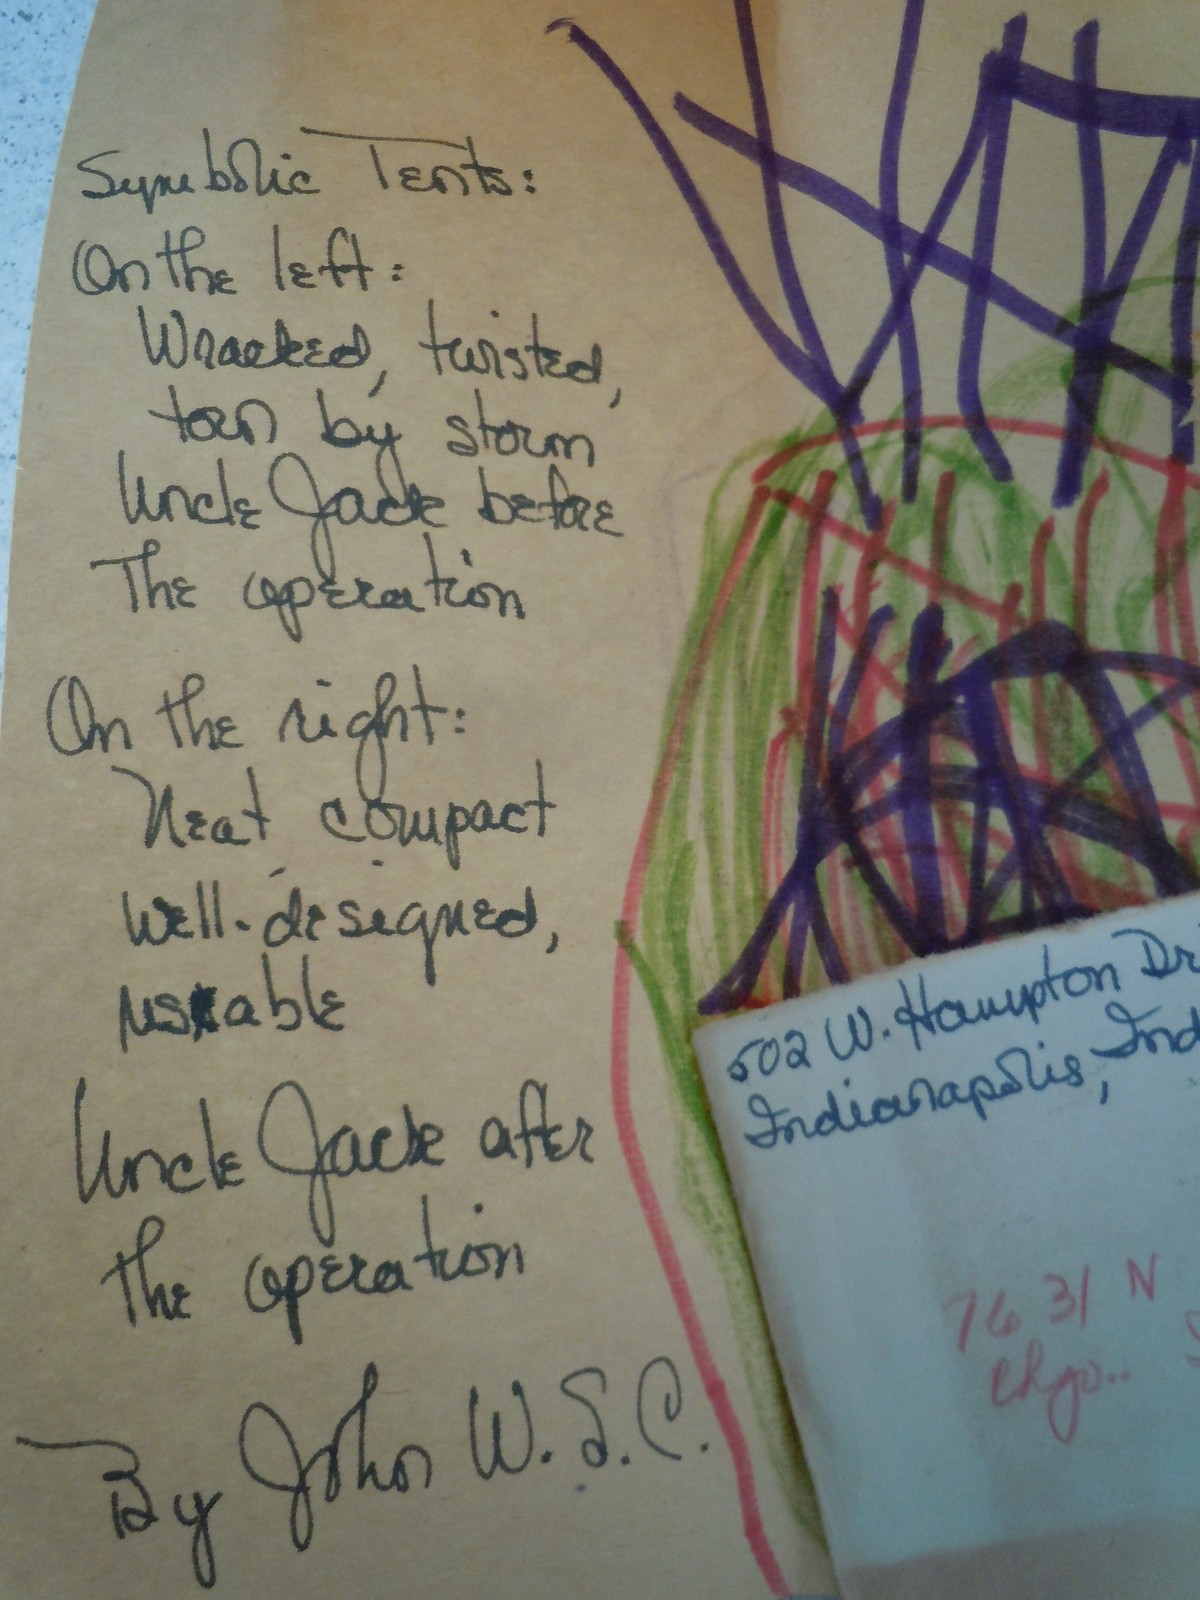 Symbolic Tents:
On the left:
Wracked, twisted,
torn by storm
Uncle Jack before
The operation
On the right:
Neat compact
well-designed,
useable
Uncle Jack after
the operation
By John W. S. C.
502 W. Hampton Dr
Indianapolis, Ind
7631 N
Chgo..